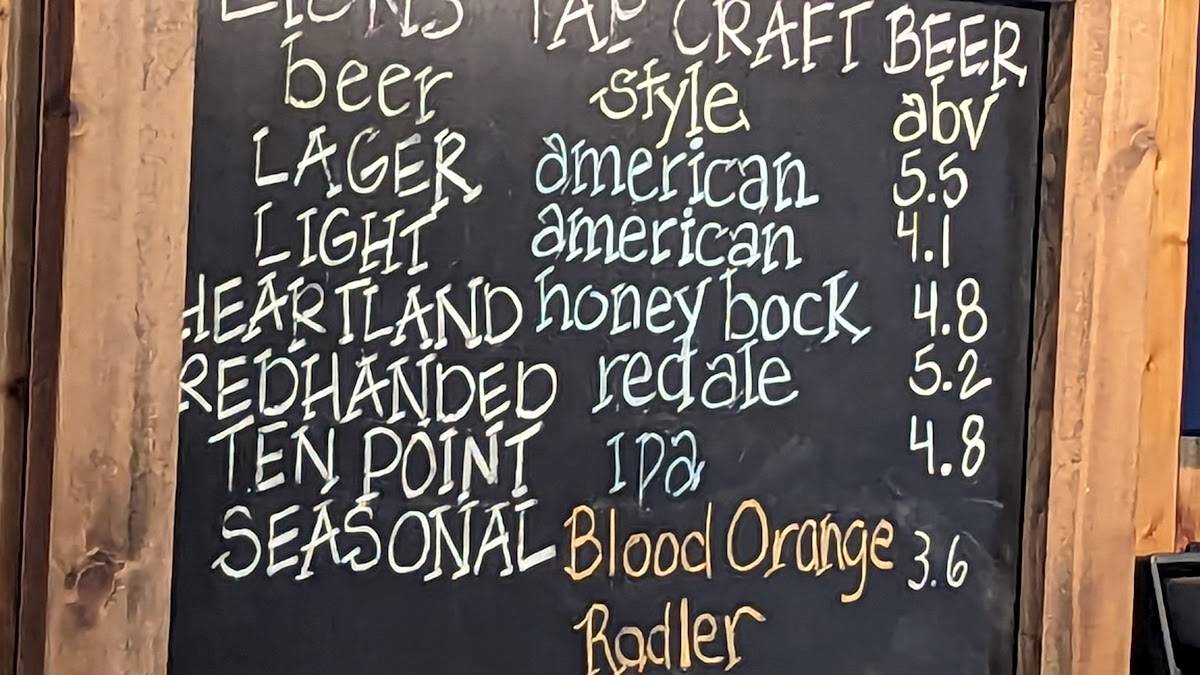 LIONS TAP CRAFT BEER
beer style abv
LAGER american 5.5
LIGHT american 4.1
HEARTLAND honey bock 4.8
REDHANDED red ale 5.2
TEN POINT IPa 4.8
SEASONAL Blood Orange 3.6
Radler